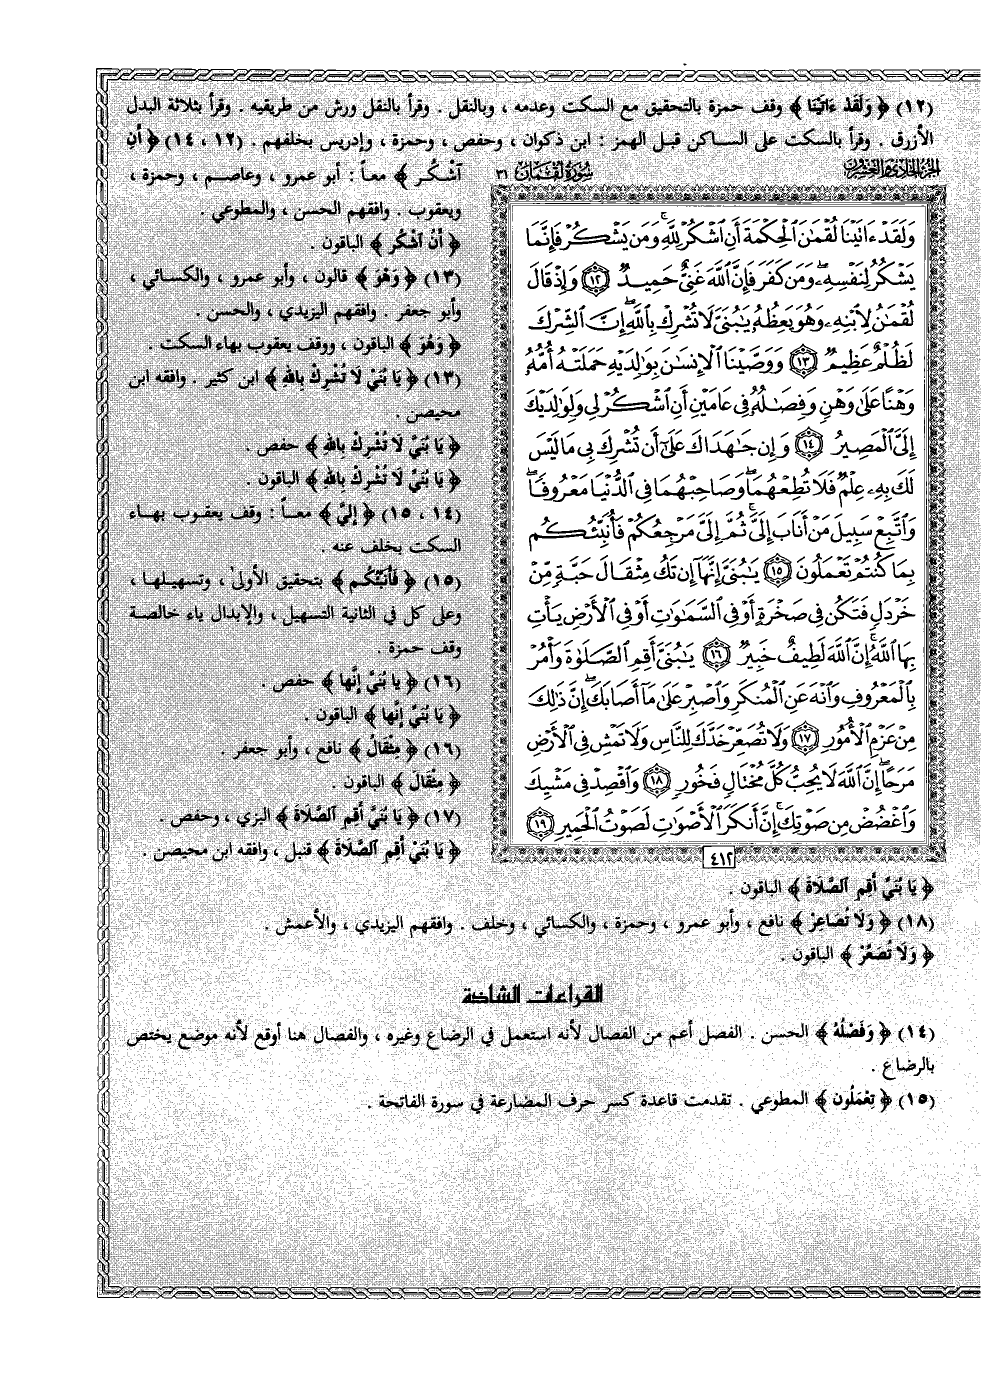 (١٢) ﴿ وَلَقَدْ ءَاتَيْنَا ﴾ وقف حمزة بالتحقيق مع السكت وعدمه ، وبالنقل . وقرأ بالنقل ورش من طريقيه . وقرأ بثلاثة البدل
الأزرق . وقرأ بالسكت على الساكن قبل الهمز : ابن ذكوان ، وحفص ، وحمزة ، وإدريس بخلفهم . (١٢ ، ١٤) ﴿ أَنِ
آشْكُر ﴾ معاً : أبو عمرو ، وعاصم ، وحمزة ،
ويعقوب . وافقهم الحسن ، والمطوعي .
﴿ أَنُ اشْكُر ﴾ الباقون .
(١٣) ﴿ وَهْوَ ﴾ قالون ، وأبو عمرو ، والكسائي ،
وأبو جعفر . وافقهم اليزيدي ، والحسن .
﴿ وَهُوَ ﴾ الباقون ، ووقف يعقوب بهاء السكت .
(١٣) ﴿ يَا بُنَيْ لَا تُشْرِكْ بِاللهِ ﴾ ابن كثير . وافقه ابن
محيصن .
﴿ يَا بُنَيَّ لَا تُشْرِكْ بِاللهِ ﴾ حفص .
﴿ يَا بُنَيِّ لَا تُشْرِكْ بِاللهِ ﴾ الباقون .
(١٤ ، ١٥) ﴿ إِلَيَّ ﴾ معاً : وقف يعقوب بهاء
السكت بخلف عنه .
(١٥) ﴿ فَأُنَبِّئُكُم ﴾ بتحقيق الأولى ، وتسهيلها ،
وعلى كل في الثانية التسهيل ، والإبدال ياء خالصة
وقف حمزة .
(١٦) ﴿ يا بُنَيَّ إِنَّها ﴾ حفص .
﴿ يَا بُنَيِّ إِنَّها ﴾ الباقون .
(١٦) ﴿ مِثْقَالُ ﴾ نافع ، وأبو جعفر .
﴿ مِثْقَالَ ﴾ الباقون .
(١٧) ﴿ يَا بُنَيَّ أَقِمِ الصَّلَاةَ ﴾ البزي ، وحفص .
﴿ يَا بُنَيْ أَقِمِ الصَّلَاةَ ﴾ قنبل ، وافقه ابن محيصن .
الجزء الحادي والعشرون
سُورَةُ لُقْمَان ٣١
وَلَقَدْ ءَاتَيْنَا لُقْمَٰنَ ٱلْحِكْمَةَ أَنِ ٱشْكُرْ لِلَّهِ ۚ وَمَن يَشْكُرْ فَإِنَّمَا
يَشْكُرُ لِنَفْسِهِۦ ۖ وَمَن كَفَرَ فَإِنَّ ٱللَّهَ غَنِىٌّ حَمِيدٌ ١٢ وَإِذْ قَالَ
لُقْمَٰنُ لِٱبْنِهِۦ وَهُوَ يَعِظُهُۥ يَٰبُنَىَّ لَا تُشْرِكْ بِٱللَّهِ ۖ إِنَّ ٱلشِّرْكَ
لَظُلْمٌ عَظِيمٌ ١٣ وَوَصَّيْنَا ٱلْإِنسَٰنَ بِوَٰلِدَيْهِ حَمَلَتْهُ أُمُّهُۥ
وَهْنًا عَلَىٰ وَهْنٍ وَفِصَٰلُهُۥ فِى عَامَيْنِ أَنِ ٱشْكُرْ لِى وَلِوَٰلِدَيْكَ
إِلَىَّ ٱلْمَصِيرُ ١٤ وَإِن جَٰهَدَاكَ عَلَىٰٓ أَن تُشْرِكَ بِى مَا لَيْسَ
لَكَ بِهِۦ عِلْمٌ فَلَا تُطِعْهُمَا ۖ وَصَاحِبْهُمَا فِى ٱلدُّنْيَا مَعْرُوفًا ۖ
وَٱتَّبِعْ سَبِيلَ مَنْ أَنَابَ إِلَىَّ ۚ ثُمَّ إِلَىَّ مَرْجِعُكُمْ فَأُنَبِّئُكُم
بِمَا كُنتُمْ تَعْمَلُونَ ١٥ يَٰبُنَىَّ إِنَّهَآ إِن تَكُ مِثْقَالَ حَبَّةٍ مِّنْ
خَرْدَلٍ فَتَكُن فِى صَخْرَةٍ أَوْ فِى ٱلسَّمَٰوَٰتِ أَوْ فِى ٱلْأَرْضِ يَأْتِ
بِهَا ٱللَّهُ ۚ إِنَّ ٱللَّهَ لَطِيفٌ خَبِيرٌ ١٦ يَٰبُنَىَّ أَقِمِ ٱلصَّلَوٰةَ وَأْمُرْ
بِٱلْمَعْرُوفِ وَٱنْهَ عَنِ ٱلْمُنكَرِ وَٱصْبِرْ عَلَىٰ مَآ أَصَابَكَ ۖ إِنَّ ذَٰلِكَ
مِنْ عَزْمِ ٱلْأُمُورِ ١٧ وَلَا تُصَعِّرْ خَدَّكَ لِلنَّاسِ وَلَا تَمْشِ فِى ٱلْأَرْضِ
مَرَحًا ۖ إِنَّ ٱللَّهَ لَا يُحِبُّ كُلَّ مُخْتَالٍ فَخُورٍ ١٨ وَٱقْصِدْ فِى مَشْيِكَ
وَٱغْضُضْ مِن صَوْتِكَ ۚ إِنَّ أَنكَرَ ٱلْأَصْوَٰتِ لَصَوْتُ ٱلْحَمِيرِ ١٩
٤١٢
﴿ يَا بُنَيِّ أَقِمِ الصَّلَاةَ ﴾ الباقون .
(١٨) ﴿ وَلَا تُصَاعِرْ ﴾ نافع ، وأبو عمرو ، وحمزة ، والكسائي ، وخلف . وافقهم اليزيدي ، والأعمش .
﴿ وَلَا تُصَعِّرْ ﴾ الباقون .
القراءات الشاذة
(١٤) ﴿ وَفَصْلُهُ ﴾ الحسن . الفصل أعم من الفصال لأنه استعمل في الرضاع وغيره ، والفصال هنا أوقع لأنه موضع يختص
بالرضاع .
(١٥) ﴿ تِعْمَلُون ﴾ المطوعي . تقدمت قاعدة كسر حرف المضارعة في سورة الفاتحة .